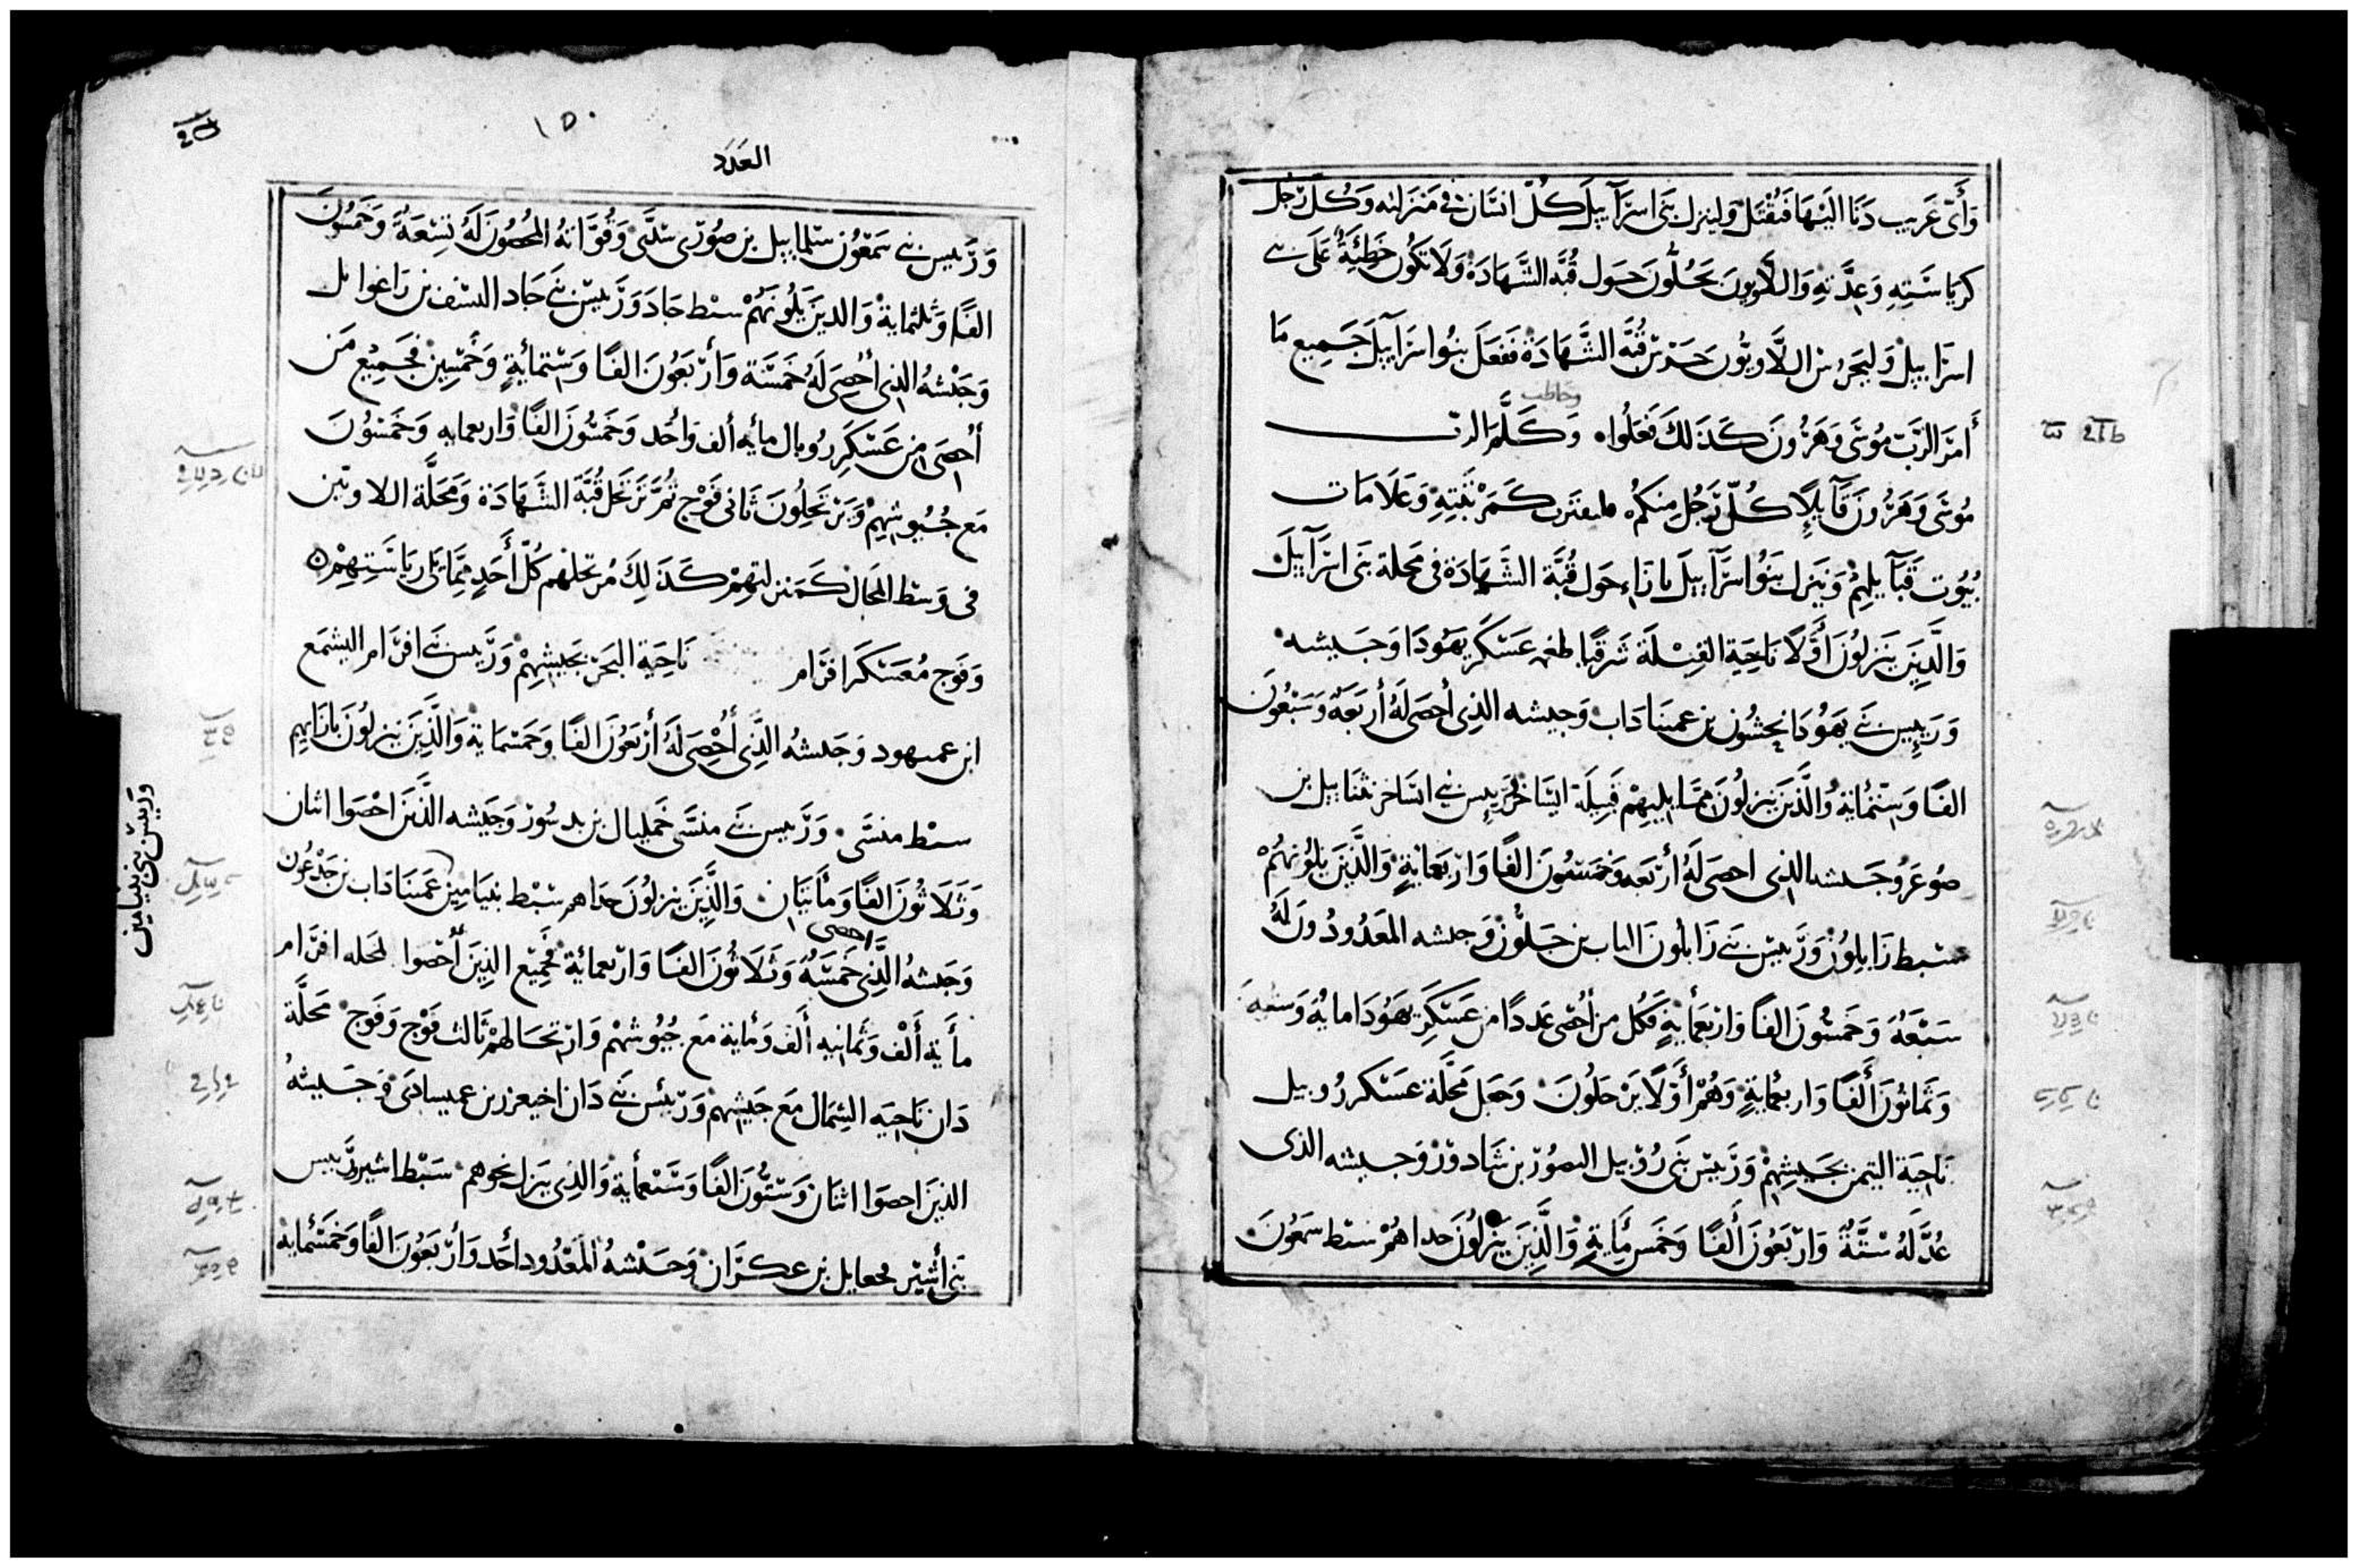 وَأَىّ غَرِيب دَنَا اليْهَا فَيُقتَل وَلينزل بَنى اسرَآييلَ كُلّ انسَان فى مَنزَلته وَكُل رَّجل
كرِيَاسَتِهِ وَعِدَّتهِ وَاللَّاوِيونَ يَحُلُّونَ حَول قُبَّه الشَّهَادَة وَلَا تَكُون خَطِئَةٌ عَلَى بنى
اسرَاييلْ وَليَحَرُسْ اللَّاويُّون حَرَسْ قُبَّه الشَّهَادَة فَفَعَلَ بنُوا سرَآييلَ جَمِيع مَا
أَمَرَ الرَّبّ مُوسَى وَهَرُونَ كَذَلكَ فَعَلُوا وَكَلَّمَ الربّ
وخاطب
مُوسَى وَهَرُونَ قَآيلًا كُلّ رَّجُل مِنكُم فليقترب كَمَرْتَبَتِهِ وَعَلَامَات
بُيُوت قَبَآيلِهِمْ وَيَنزل بَنُوا سرَآييلَ بازَاء حَول قُبَّة الشَّهَادَة فى مَحلة بَنى اسرَآييلَ
وَالَّذِينَ يَنزلُونَ أَوَّلًا نَاحَيَة القِبْلَة شَرقيًّا طغمه عَسْكَر يَهُودَا وَجَيشه
وَرَييس بَنى يَهُودَا نحشُون بن عميناداب وَجيشه الذى أُحصى لَهُ أَربَعَهُ وَسَبْعُونَ
الفًا وَسِتّمُائة وَالَّذينَ ينزلُونَ ممَّا يليهِمْ قَبيلَة ايسَاخر وَرَييس بنى ايسَاخر نثنَاييل بن
صُوغَر وَجَيشه الذى احصى لَهُ أَربَعه وَخَمسُونَ الفًا وَاربَعمائةٍ وَالَّذينَ يلُونَهُمْ
سبط زَابلُون وَرَّييس بَنى زَابلُونَ الياب بن حَيلُون وَجيشه المَعدُودُونَ لَهُ
سَبْعَهُ وَخَمسُونَ الفًا وَاربَعمأيةٍ فَكُل من أُحْصى عَددًا من عَسْكَر يَهُودَا مأيةٌ وَستهٌ
وَثَمَانُونَ أَلفًا وَاربعُمايةٍ وَهُمْ أَوَّلًا يَرْحلُونَ وَجَعل مَحَلَّة عَسْكر رُوبيل
نَاحيَة اليَمن بجَيشِهِمْ وَرَّييس بَنى رُوْبيل اليصُوْر بن شَادوْرْ وَجَيشه الذى
عُدَّ لَهُ سْتَّةٌ وَاربَعُونَ أَلفًا وَخَمس مِّايةٍ وَالَّذِينَ يَنْزلُونَ حداهُمْ سبط سمَعُونَ
١٥٠
العَدَد
وَرَّييس بنى سَمَعُون سَلماييل بن صُورّى شدَّى وَقُوَّاتهُ المُحْصُونَ لَهُ تِسْعَةٌ وَخَمسُونَ
الفًا وَثلثماية وَالذينَ يَلُونَهُمْ سبط جَادَ وَرَّييس بَنى جَاد اليسَف بن رَاغوايل
وَجَيْشهُ الذى أُحصى لَهُ خَمسَة وَأَربَعُونَ الفًا وَستمأيةٍ وَخَمسِين فجَمِيْع مَن
أُحْصى من عَسْكَر رُوبال مأيه ألف وَاحد وَخَمسُونَ الفًا وَاربعمايه وَخَمسُونَ
مَع جُيُوشِهِمْ وَيَرْتَحلُونَ ثَانى فَوْج ثُمَّ تَرْتحل قُبَّة الشَّهَادَة وَمَحَلَّة اللاويّين
فى وَسْط المَحَال كَمَنزلتِهِمْ كَذَلِكَ مُرتحلهم كُلّ أَحَدٍ ممَّا يَلى ريَاسَتِهِمْ
وَفَوج مُعَسْكَر افرَام نَاحيَة البَحَرّ بَجَيشِهِمْ وَرَّييس بَنى افرَّام اليشمع
ابن عميهود وَجَيشهُ الَّذِى أُحْصِى لَهُ أَربَعُونَ الفًا وَخَمسْماية وَالَّذِينَ يَنزلُونَ بازَايهِم
سبْط منسَّى وَرَّييس بَنى منسَّى جَمليال بن بدسُور وَجَيشه الَّذينَ احْصَوا اثنان
وَثَلَاثُونَ الفًا وَمأتيَان وَالَّذِينَ ينزلُونَ حداهم سَبْط بنيَامين عَمينَادَاب بن جَدْعُون
وَجَيشهُ الَّذِى احصى خَمسَّهٌ وَثَلَاثُونَ الفًا وَاربعمائة فجَمِيْع الذِينَ أُحْصُوا لمحله افرَّام
مأَية أَلْف وَثَمانيه أَلف وَمايَة مَع جُيُوشهُمْ وَارتحَالهُمْ ثَالث فَوْج وَفَوج مَحلَّة
دَان نَاحيَه الشَّمَال مَع جَيشِهمْ وَرَّييس بَنى دَان اخيعزر بن عميسادى وَجَيشهُ
الذينَ احصَوا اثنَان وَستُّونَ الفًا وَسَبعمأية وَالذى يَنزل نحوهم سَبْط اشير وَرَّييس
بَنى أَشير فجعايل بن عكرَّان وَجَيْشهُ المَعْدُود أَحَد وَأَربَعُونَ الفًا وَخمَسُمايه
وَرييس بَنى بنيامين